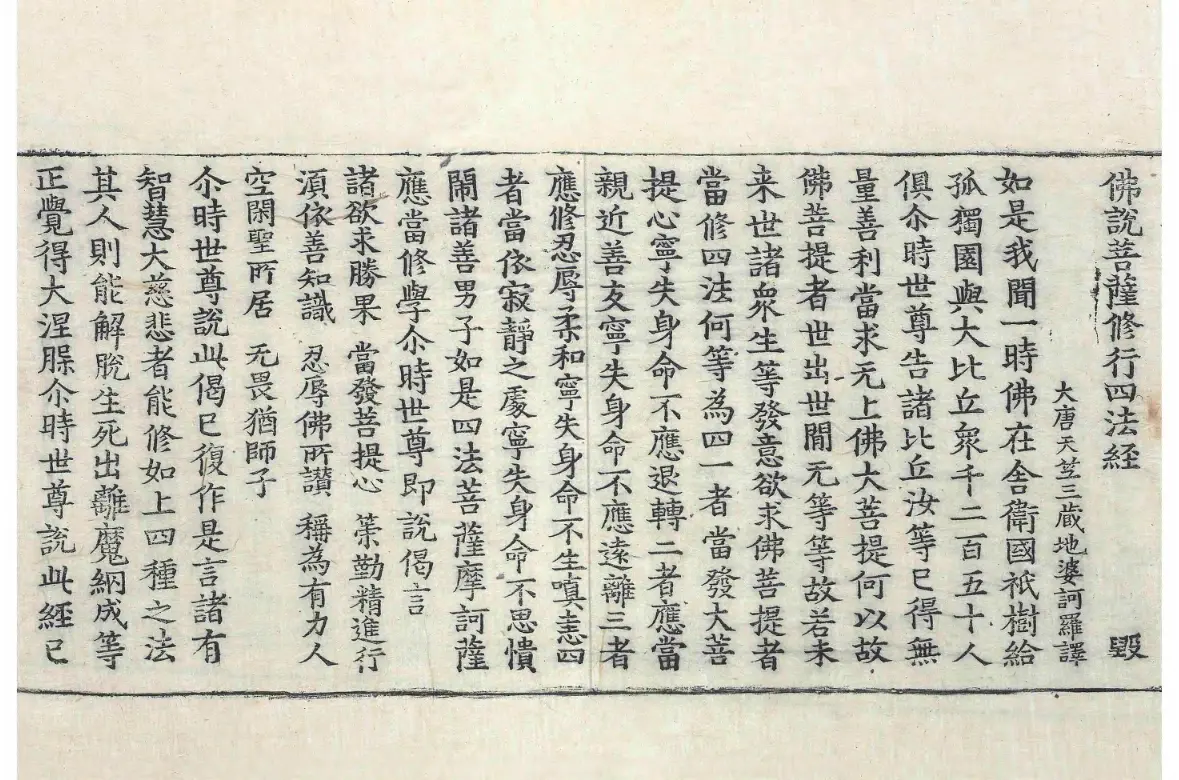 佛說菩薩修行四法経 毀
大唐天笁三蔵地婆訶羅譯
如是我聞一時佛在舎衛國祇樹給
孤獨園與大比丘衆千二百五十人
俱尒時世尊告諸比丘汝等已得無
量善利當求无上佛大菩提何以故
佛菩提者世出世間无等等故若未
来世諸衆生等發意欲求佛菩提者
當修四法何等為四一者當發大菩
提心寧失身命不應退轉二者應當
親近善友寧失身命不應遠離三者
應修忍辱柔和寧失身命不生嗔恚四
者當依寂靜之處寧失身命不思憒
閙諸善男子如是四法菩薩摩訶薩
應當修學尒時世尊即說偈言
諸欲求勝果 當發菩提心 䇿勤精進行
湏依善知識 忍辱佛所讃 稱為有力人
空閑聖所居 无畏猶師子
尒時世尊說此偈已復作是言諸有
智慧大慈悲者能修如上四種之法
其人則能解脫生死出離魔網成等
正覺得大涅脲尒時世尊說此經已